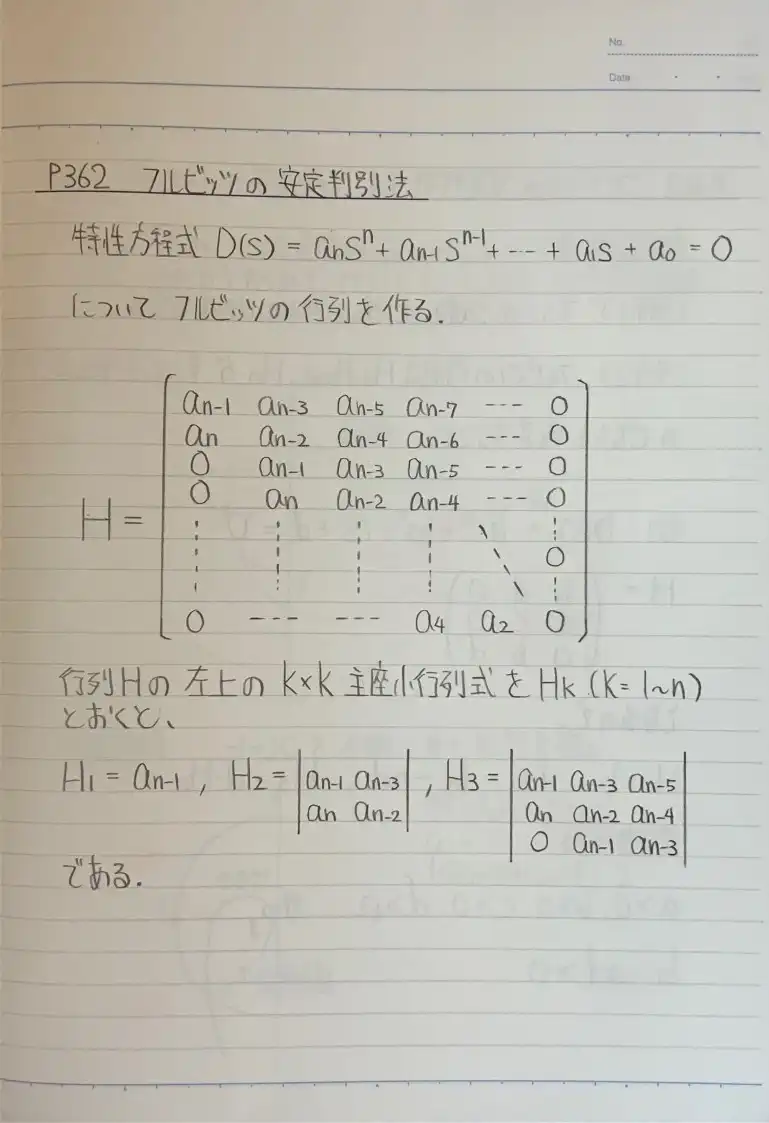 No.
Date
P362 フルビッツの安定判別法
特性方程式 D(S) = anSⁿ + an-1Sⁿ⁻¹ + --- + a1S + a0 = 0
について フルビッツの行列を作る.
an-1 an-3 an-5 an-7 --- 0
an an-2 an-4 an-6 --- 0
0 an-1 an-3 an-5 --- 0
0 an an-2 an-4 --- 0
H =
0
0 --- --- a4 a2 0
行列Hの 左上の k×k 主座小行列式を Hk (K=1~n)
とおくと、
H1 = an-1 , H2 = |an-1 an-3| , H3 = |an-1 an-3 an-5|
|an an-2| |an an-2 an-4|
|0 an-1 an-3|
である.